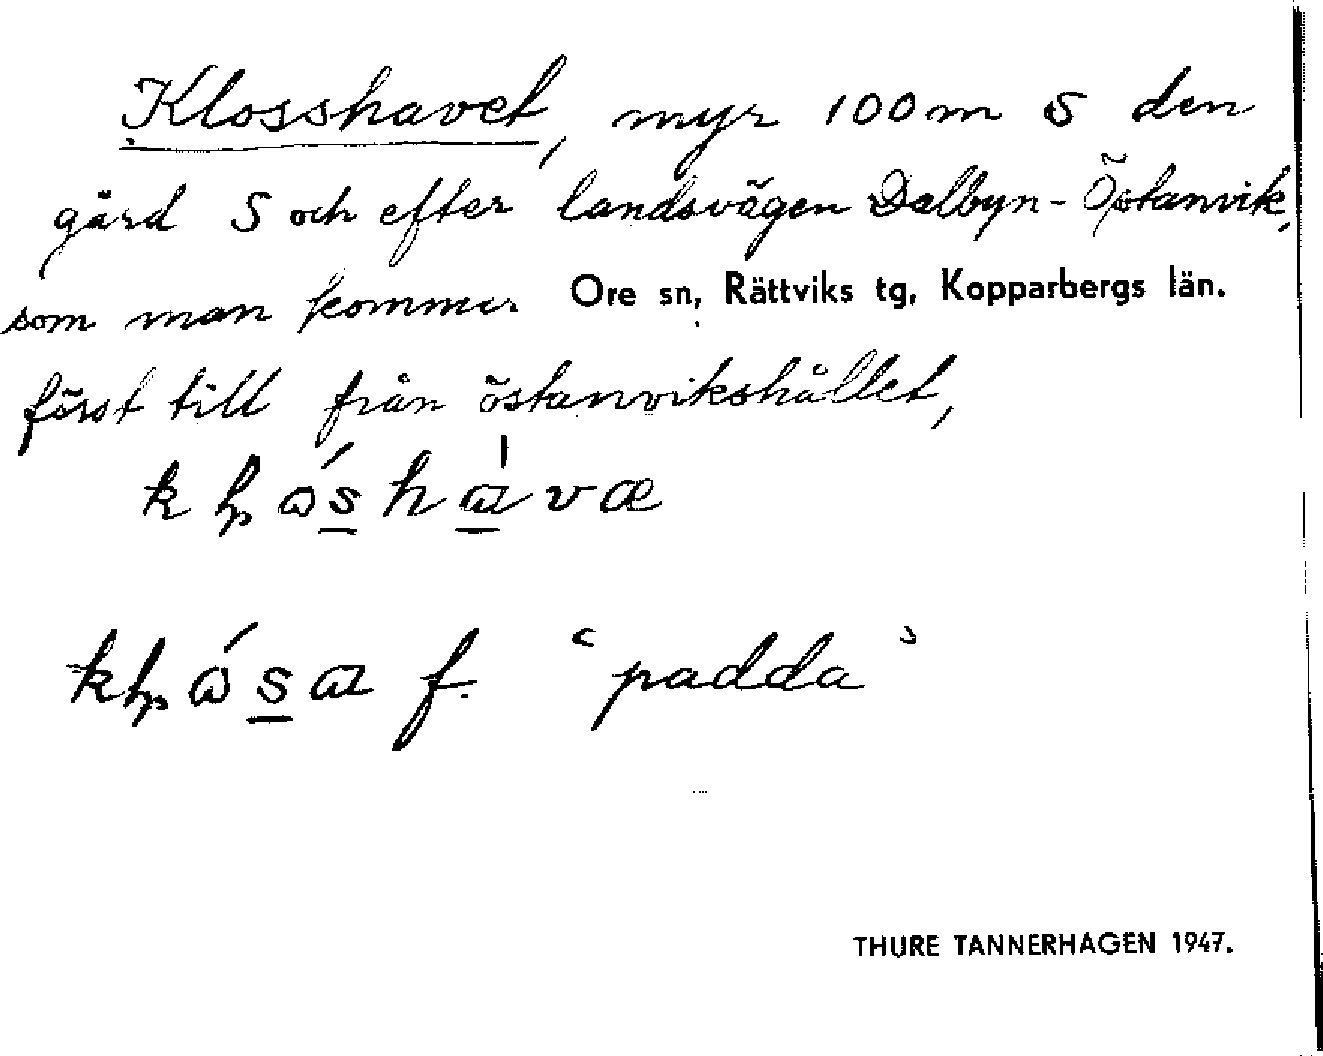 Klosshavet, myr 100 m S den
gård S och efter landsvägen Dalbyn-Östanvik,
som man kommer Ore sn, Rättviks tg, Kopparbergs län.
först till från östanvikshållet,
"padda"
THURE TANNERHAGEN 1947.